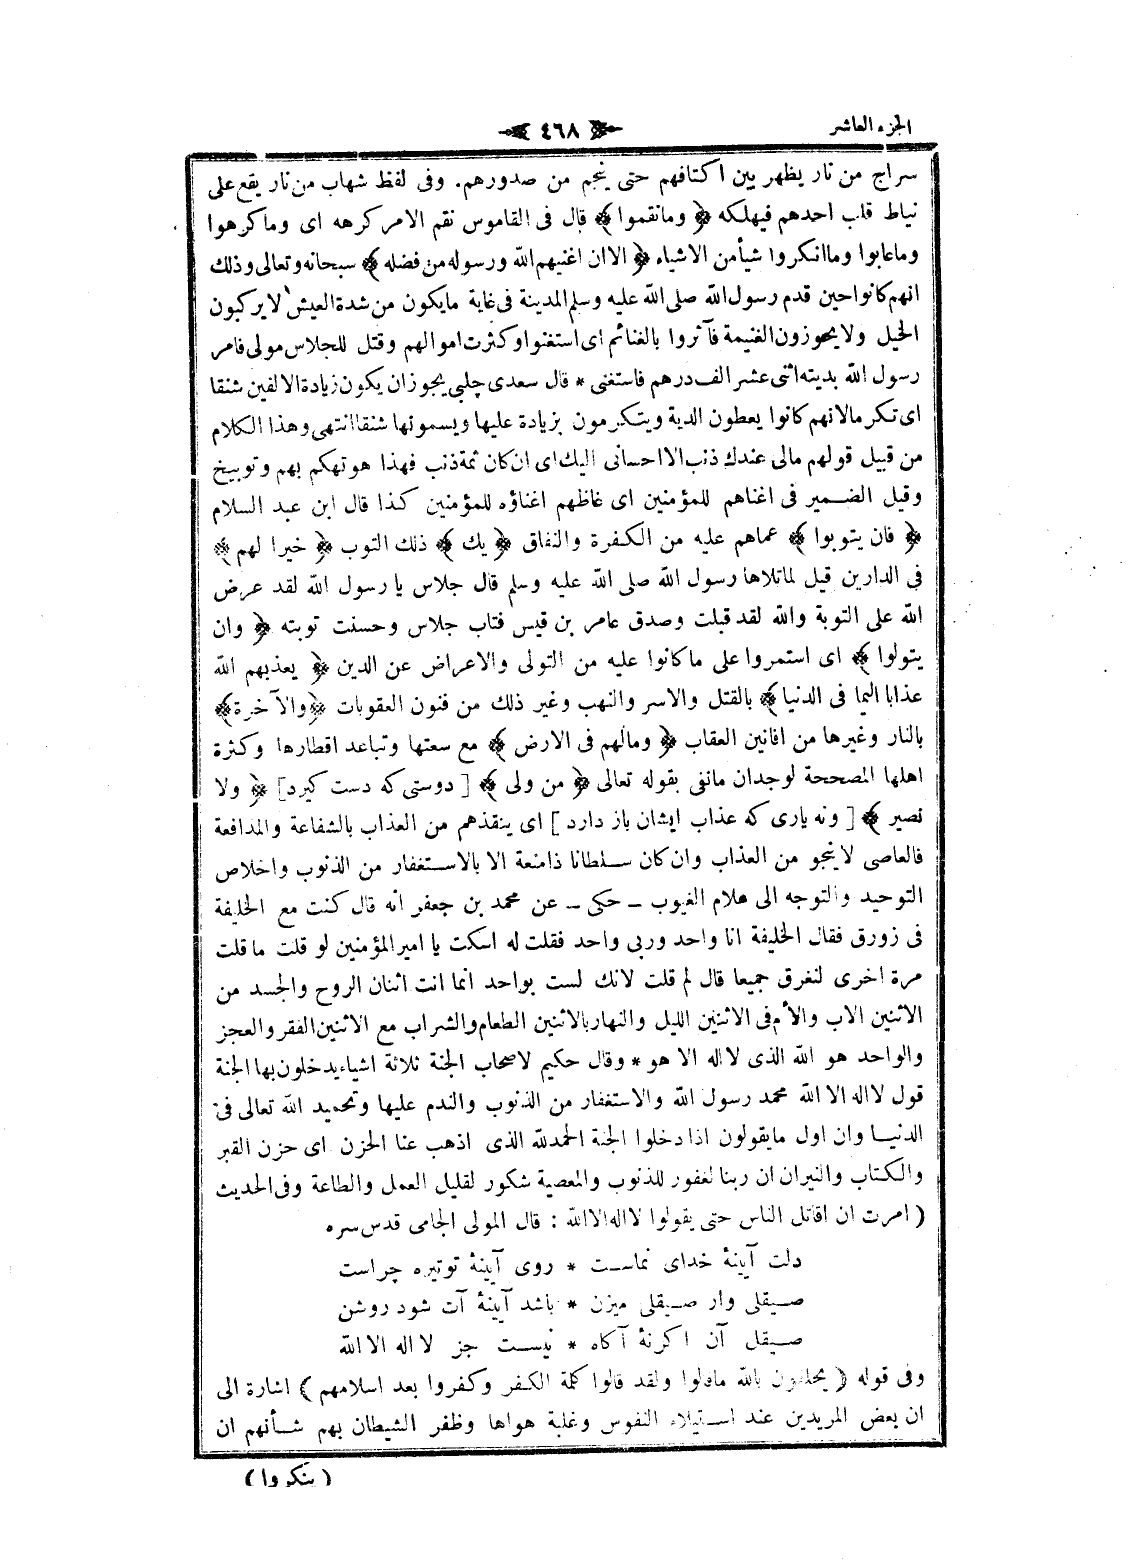 الجزء العاشر
٤٦٨
سراج من نار يظهر بين اكتافهم حتى ينجم من صدورهم. وفى لفظ شهاب من نار يقع على
نياط قلب احدهم فيهلكه ﴿ ومانقموا ﴾ قال فى القاموس نقم الامر كرهه اى وماكرهوا
وماعابوا وماانكروا شيأ من الاشياء ﴿ الا ان اغنيهم الله ورسوله من فضله ﴾ سبحانه وتعالى وذلك
انهم كانوا حين قدم رسول الله صلى الله عليه وسلم المدينة فى غاية مايكون من شدة العيش لا يركبون
الخيل ولا يحوزون الغنيمة فآثروا بالغنائم اى استغنوا وكثرت اموالهم وقتل للجلاس مولى فامر
رسول الله بديته اثنى عشر الف درهم فاستغنى * قال سعدى چلبى يجوز ان يكون زيادة الالفين شنقا
اى تكرما لانهم كانوا يعطون الدية ويتكرمون بزيادة عليها ويسمونها شنقا انتهى وهذا الكلام
من قبيل قولهم مالى عندك ذنب الا احسانى اليك اى ان كان ثمة ذنب فهذا هو تهكم بهم وتوبيخ
وقيل الضمير فى اغناهم للمؤمنين اى غاظهم اغناؤه للمؤمنين كذا قال ابن عبد السلام
﴿ فان يتوبوا ﴾ عماهم عليه من الكفرة والنفاق ﴿ يك ﴾ ذلك التوب ﴿ خيرا لهم ﴾
فى الدارين قيل لماتلاها رسول الله صلى الله عليه وسلم قال جلاس يا رسول الله لقد عرض
الله على التوبة والله لقد قبلت وصدق عامر بن قيس فتاب جلاس وحسنت توبته ﴿ وان
يتولوا ﴾ اى استمروا على ماكانوا عليه من التولى والاعراض عن الدين ﴿ يعذبهم الله
عذابا اليما فى الدنيا ﴾ بالقتل والاسر والنهب وغير ذلك من فنون العقوبات ﴿ والآخرة ﴾
بالنار وغيرها من افانين العقاب ﴿ ومالهم فى الارض ﴾ مع سعتها وتباعد اقطارها وكثرة
اهلها المصححة لوجدان مانفى بقوله تعالى ﴿ من ولى ﴾ [ دوستى كه دست كيرد ] ﴿ ولا
نصير ﴾ [ ونه يارى كه عذاب ايشان باز دارد ] اى ينقذهم من العذاب بالشفاعة والمدافعة
فالعاصى لا ينجو من العذاب وان كان سلطانا ذامنعة الا بالاستغفار من الذنوب واخلاص
التوحيد والتوجه الى علام الغيوب ـ حكى ـ عن محمد بن جعفر انه قال كنت مع الخليفة
فى زورق فقال الخليفة انا واحد وربى واحد فقلت له اسكت يا امير المؤمنين لو قلت ما قلت
مرة اخرى لنغرق جميعا قال لم قلت لانك لست بواحد انما انت اثنان الروح والجسد من
الاثنين الاب والأم فى الاثنين الليل والنهار بالاثنين الطعام والشراب مع الاثنين الفقر والعجز
والواحد هو الله الذى لا اله الا هو * وقال حكيم لاصحاب الجنة ثلاثة اشياء يدخلون بها الجنة
قول لا اله الا الله محمد رسول الله والاستغفار من الذنوب والندم عليها وتحميد الله تعالى فى
الدنيا وان اول مايقولون اذا دخلوا الجنة الحمدلله الذى اذهب عنا الحزن اى حزن القبر
والكتاب والنيران ان ربنا لغفور للذنوب والمعصية شكور لقليل العمل والطاعة وفى الحديث
( امرت ان اقاتل الناس حتى يقولوا لا اله الا الله : قال المولى الجامى قدس سره
دلت آيينۀ خداى نماست * روى آيينۀ توتيره چراست
صيقلى وار صيقلى ميزن * باشد آيينۀ ات شود روشن
صيقل آن اكرنۀ آكاه * نيست جز لا اله الا الله
وفى قوله ﴿ يحلفون بالله ماقالوا ولقد قالوا كلمة الكفر وكفروا بعد اسلامهم ﴾ اشارة الى
ان بعض المريدين عند استيلاء النفوس وغلبة هواها وظفر الشيطان بهم شأنهم ان
( ينكروا )